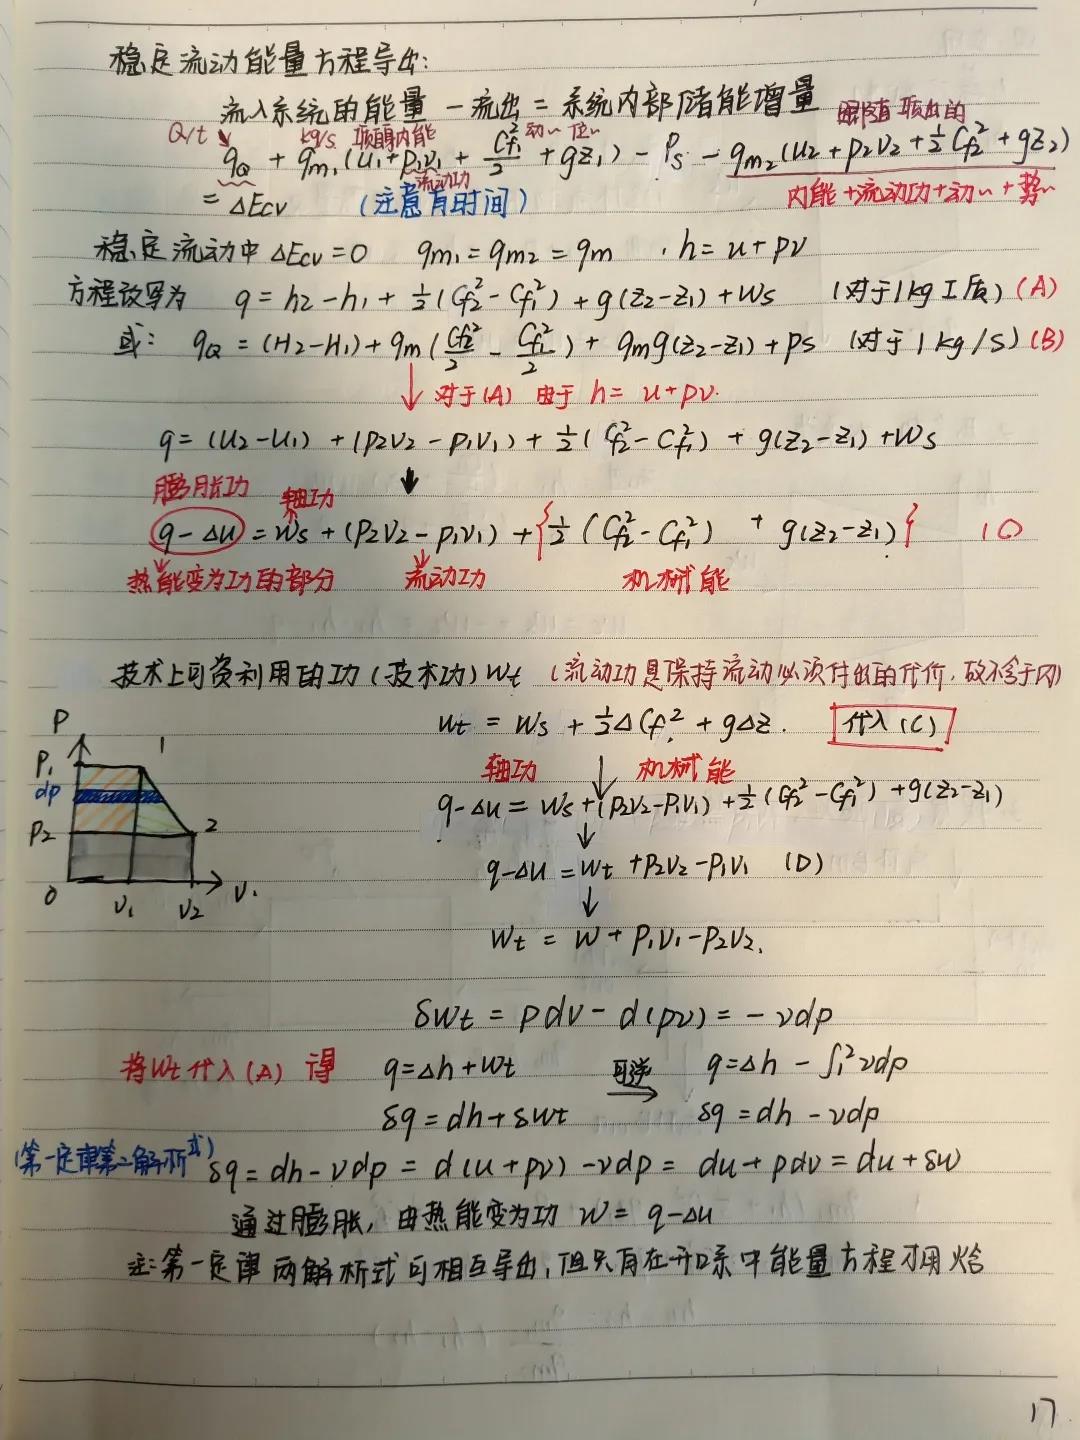 稳定流动能量方程导出:
流入系统的能量 - 流出 = 系统内部储能增量
Q/t kg/s 内能 动~ 位~ 跟随 出的
qQ + qm1(u1+p1v1 + Cf1²/2 + gz1) - Ps - qm2(u2+p2v2+½Cf2²+gz2)
流动功
= ΔEcv (注意有时间) 内能+流动功+动~+势~
稳定流动中 ΔEcv=0 qm1=qm2=qm . h=u+pv
方程改写为 q=h2-h1+½(Cf2²-Cf1²)+g(z2-z1)+Ws (对于1kg工质) (A)
或: qQ=(H2-H1)+qm(Cf2²/2 - Cf1²/2)+qmg(z2-z1)+Ps (对于1kg/s) (B)
↓对于(A) 由于 h=u+pv.
q=(u2-u1)+(p2v2-p1v1)+½(Cf2²-Cf1²)+g(z2-z1)+Ws
膨胀功 轴功 ↓
q-Δu=Ws+(p2v2-p1v1)+{½(Cf2²-Cf1²)+g(z2-z1)} (C)
热能变为功的部分 流动功 机械能
技术上可资利用的功(技术功)Wt (流动功是保持流动必须付出的代价,故不含于内)
Wt=Ws+½ΔCf²+gΔz. 代入(C)
轴功 ↓ 机械能
q-Δu=Ws+(p2v2-p1v1)+½(Cf2²-Cf1²)+g(z2-z1)
↓
q-Δu=Wt+p2v2-p1v1 (D)
↓
Wt=W+p1v1-p2v2.
P
P1 1
dp
P2 2
0 V1 V2 V.
δWt=pdv-d(pv)=-vdp
将Wt代入(A)得 q=Δh+Wt 可逆→ q=Δh-∫₁²vdp
δq=dh+δWt δq=dh-vdp
(第一定律第二解析式) δq=dh-vdp=d(u+pv)-vdp=du+pdv=du+δW
通过膨胀,由热能变为功 W=q-Δu
注:第一定律两解析式可相互导出,但只有在开口系中能量方程才用焓
17